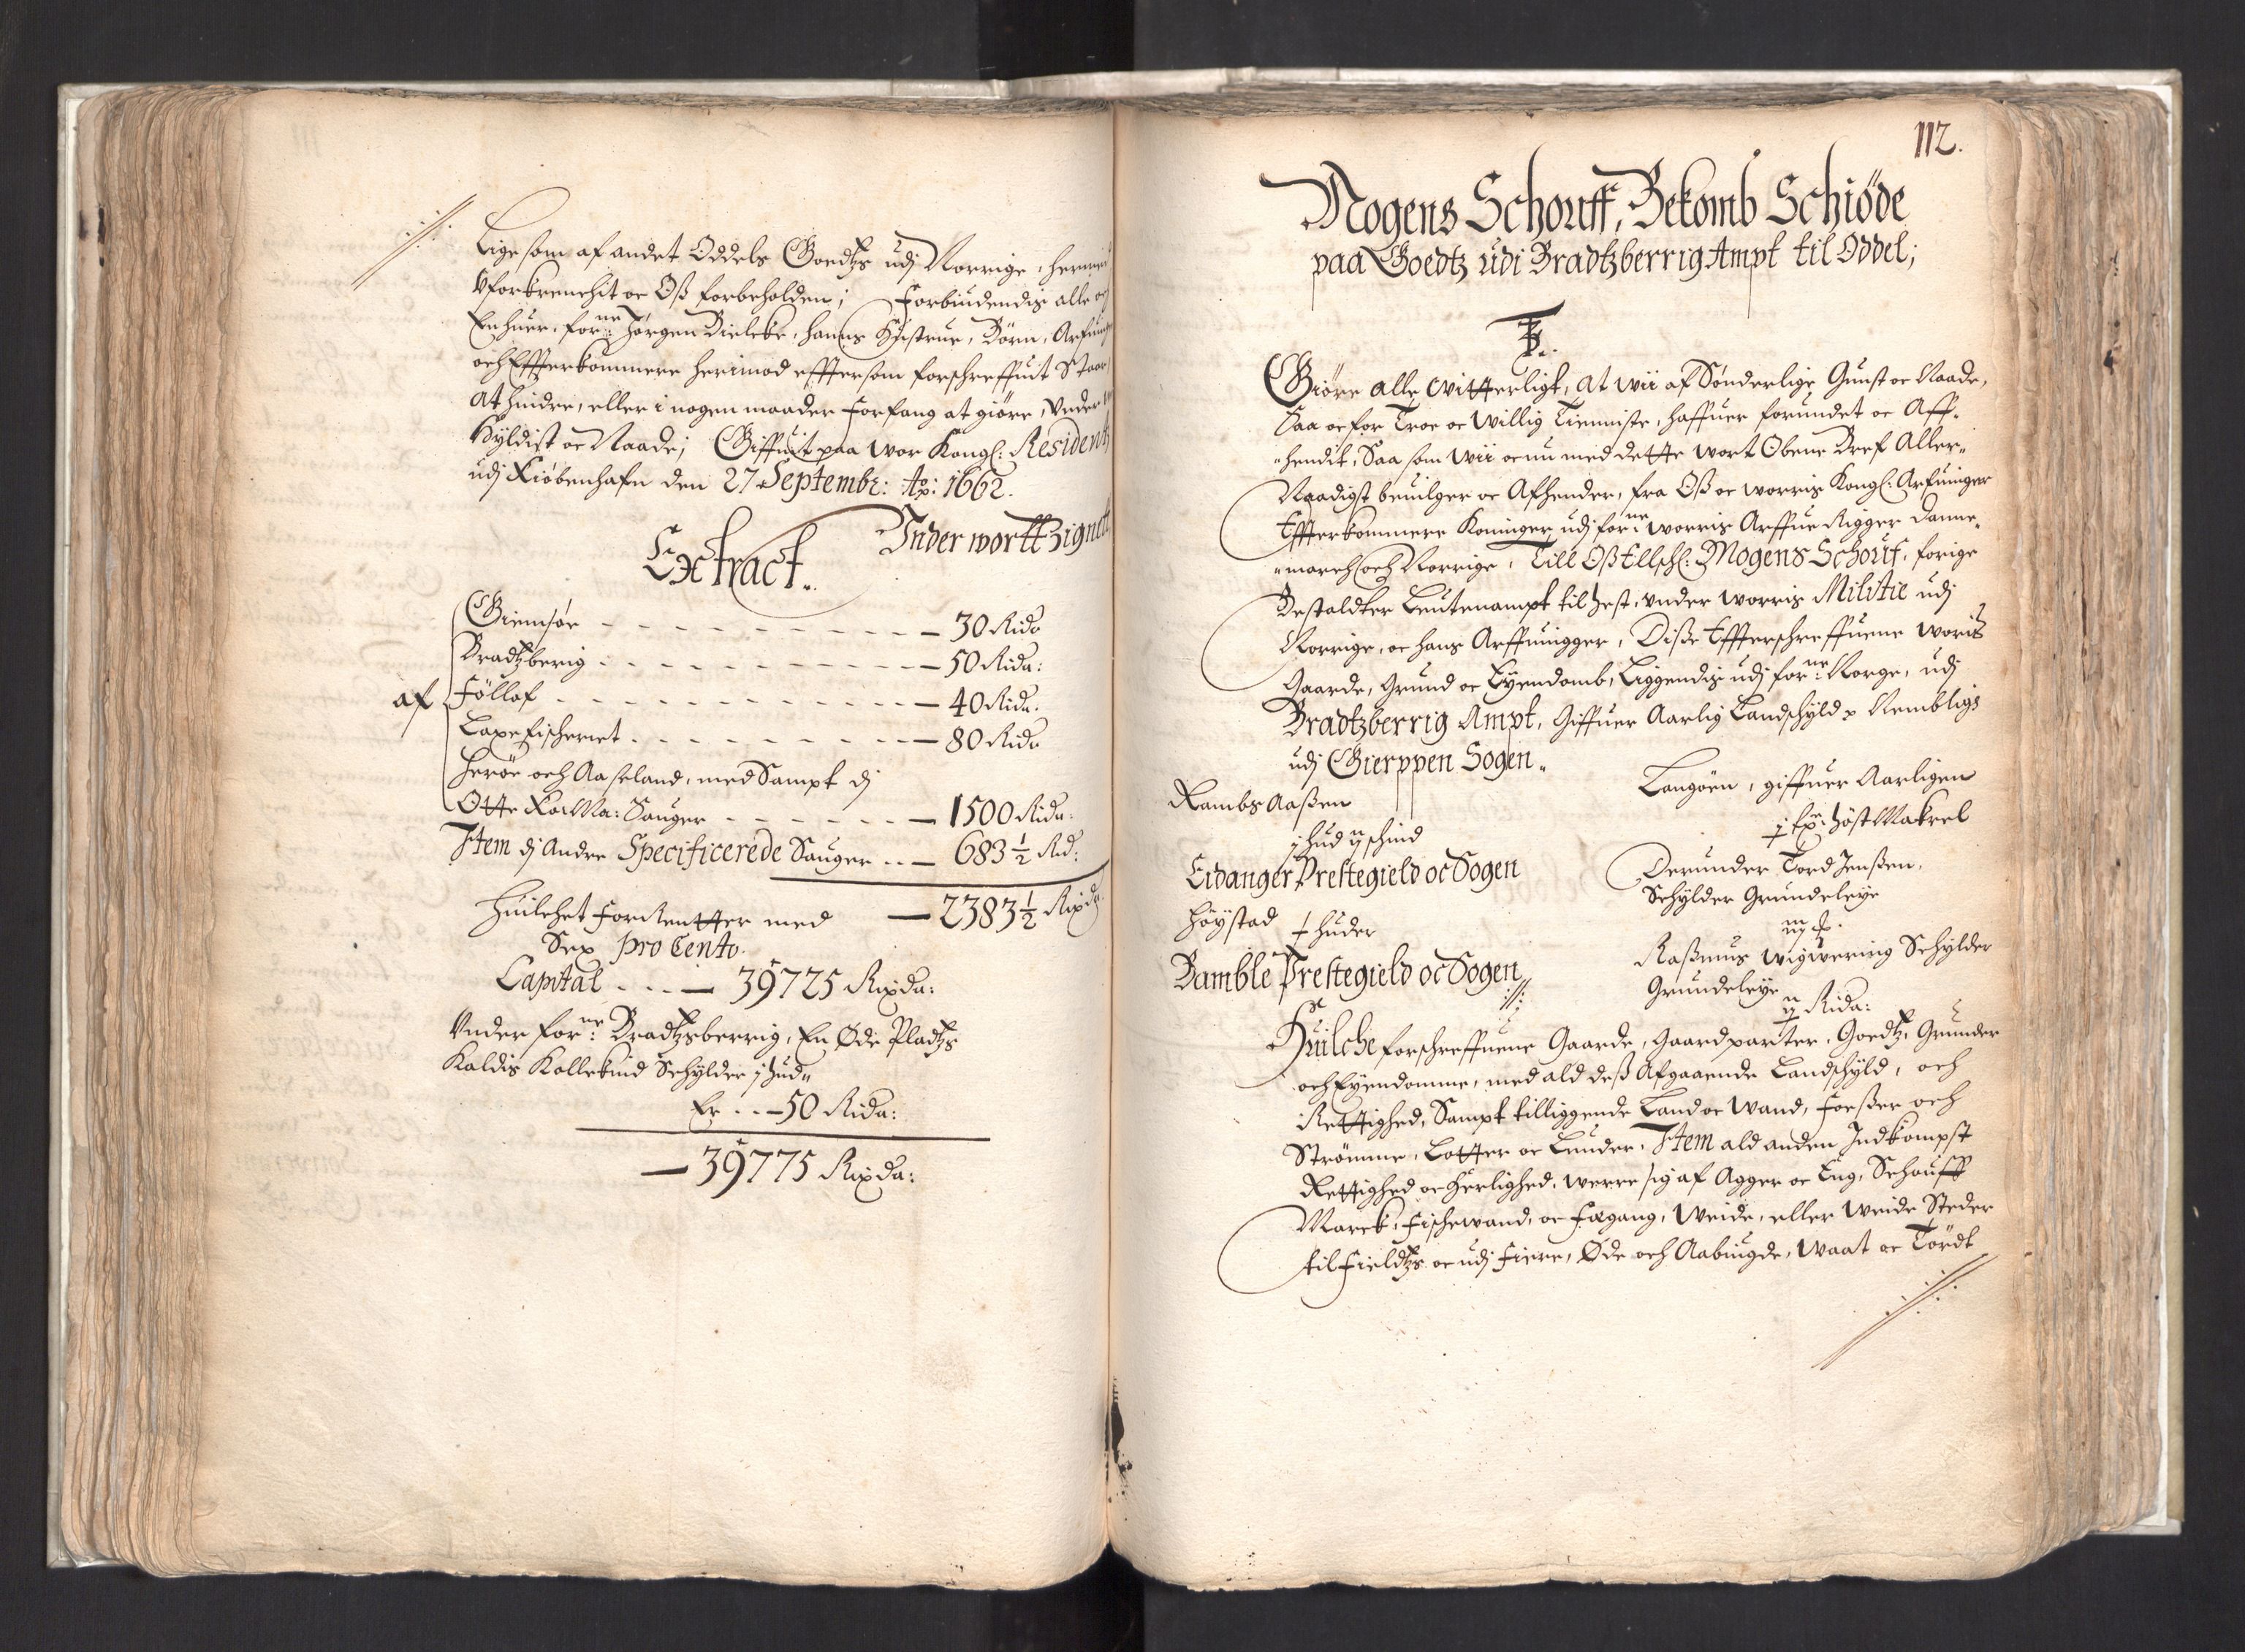 Lige som af andet Oddels Goedtz udj Norrige, hermed
Uforkrenchit oc Oß forbeholden; Forbiudendis alle och
Enhuer, for:ne Jørgen Bielcke, hans Hustrue, Børn, Arfuinger
och Effterkommere herimod efftersom forschreffuit Staar
At hindre, eller i nogen maader Forfang at giøre, Under
Hyldist oc Naade; Giffuit paa wor Kongl: Residentz
udj Kiøbenhafn den 27 Septembr: Ao: 1662.
Under wortt Zignett
Extract.
Giemsøe - - - 30 Rida
Bradtzberig - - - 50 Rida:
af Föllaf - - - 40 Rida.
Laxefischeriet - - - 80 Rida
Herøe och Aaseland, med Sampt dj
Otte Sauger - - - 1500 Rida:
Item dj Andre Specificerede Sauger - - 683 1/2 Rid:
Huilchet ForRentter med — 2383 1/2 Rixda.
Sex pro Cento.
Capital - - - 39725 Rixda:
Under for:ne Bradtzberrig, En Øde Pladtz
Kaldis Kollekind Schylder j hud„
Er - - - 50 Rida:
— 39775 Rixda:
112.
Mogens Schouff, Bekomb Schiöde
paa Goedtz udi Bradtzberrig Ampt til Oddel;
Giöre alle witterligt, At wii af Sønderlige Gunst oc Naade,
Saa oc for Troe oc willig Tienniste, haffuer forundet oc Aff-
„hendit, Saa som wii oc nu med dette wort Obene Bref Aller-
Naadigst beuilger oc Afhender, fra Oß oc worris Kongl: Arfuinger
Effterkommere Koninger udj for:ne worris Arffue Rigger Danne-
„march och Norrige, Till Oß Ellschl: Mogens Schouf, forige
Bestaldter Leutenampt til Hest, under worris Militie udj
Norrige, oc hans Arffuingger, Disse Effterschreffuene woris
Gaarde, Grund oc Eyendomb, Liggendis udj for:ne Norge, udj
Bradtzberrig Ampt, Giffuer Aarlig Landschyld, Nemblig
udj Gierppen Sogen„
Rambs Aaßen
j hud ij schind
Eidanger Prestegield oc Sogen
Höystad ½ huder
Bamble Prestegield oc Sogen
Langöen, giffuer Aarligen
j höst Makrel
Derunder Tord Jenßen,
Schylder Grundeleye
Raßmus wigwering Schylder
Grundeleye
ij Rida:
Huilche forschreffuene Gaarde, Gaardparter, Goedtz, Grunder
och Eyendomme, med ald deß Afgaaende Landschyld, och
Rettighed, Sampt tilliggende Land oc wand, Foeßer och
Strømme, Lotter oc Lunder, Item ald anden Indkompst
Rettighed oc herlighed, werre sig af Agger oc Eng, Schouff
Marck, Fischewand, oc Fægang, weide, eller weide Steder
til Fieldtz oc udj Fiere, Øde och Aabuigde, waat oc Tördt